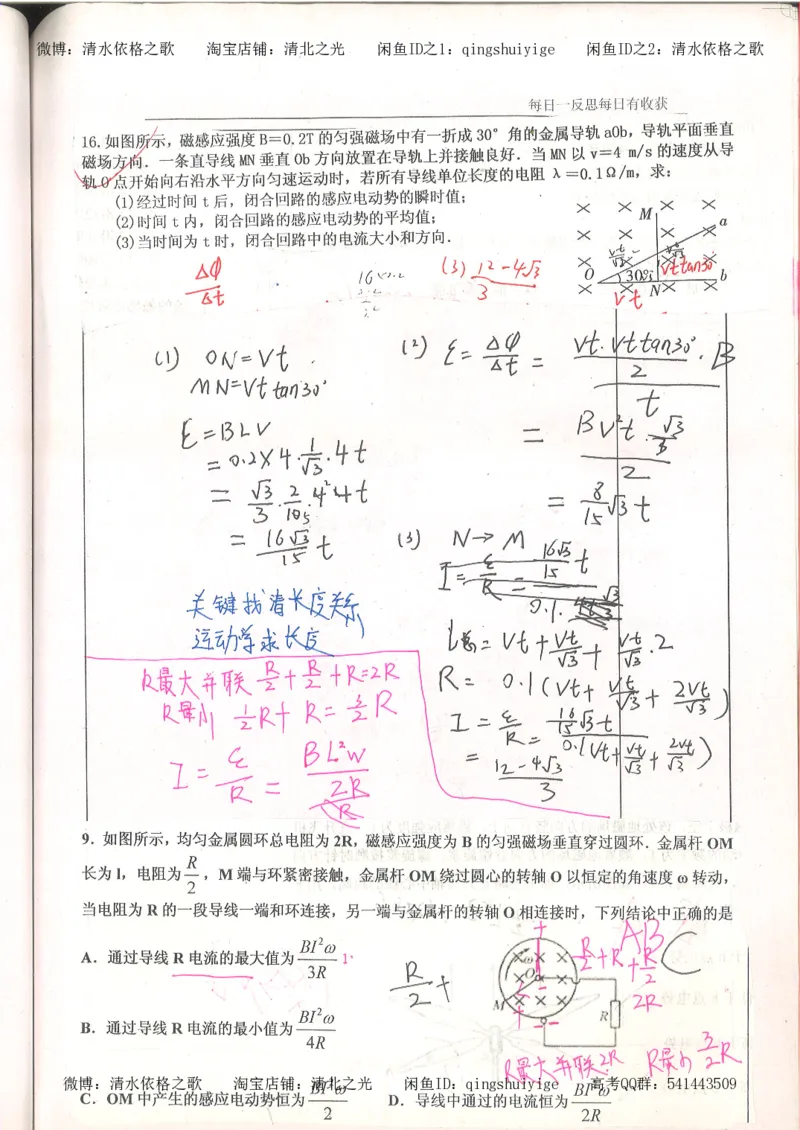 微博：清水依格之歌 淘宝店铺：清北之光 闲鱼ID之1：qingshuiyige 闲鱼ID之2：清水依格之歌
每日一反思每日有收获
16.如图所示，磁感应强度B＝0.2T的匀强磁场中有一折成30°角的金属导轨aOb，导轨平面垂直
磁场方向．一条直导线MN垂直Ob方向放置在导轨上并接触良好．当MN以v＝4 m/s的速度从导
轨O点开始向右沿水平方向匀速运动时，若所有导线单位长度的电阻 λ＝0.1Ω/m，求：
(1)经过时间t后，闭合回路的感应电动势的瞬时值；
(2)时间t内，闭合回路的感应电动势的平均值；
(3)当时间为t时，闭合回路中的电流大小和方向．
M
a
O
30°
N
b
vt/√3
vttan30°
vt
Δφ/Δt
(3) (12-4√3)/3
(1) ON=vt
MN=vttan30°
ε=BLV
=0.2×4·1/√3·4t
=16√3/15 t
(2) ε=Δφ/Δt=(vt·vttan30°/2·B)/t
=(Bv²t·√3/3)/2
=8/15√3t
(3) N→M
I=ε/R=
L总=vt+vt/√3+vt/√3·2
R=0.1(vt+vt/√3+2vt/√3)
I=ε/R=(16/15√3t)/(0.1(vt+vt/√3+2vt/√3))
=(12-4√3)/3
关键找清长度关系
运动学求长度
R最大并联 R/2+R/2+R=2R
R最小 1/2R+R=3/2R
I=ε/R=BL²w/2R
9．如图所示，均匀金属圆环总电阻为2R，磁感应强度为B的匀强磁场垂直穿过圆环．金属杆OM
长为l，电阻为R/2，M端与环紧密接触，金属杆OM绕过圆心的转轴O以恒定的角速度ω转动，
当电阻为R的一段导线一端和环连接，另一端与金属杆的转轴O相连接时，下列结论中正确的是
ABC
A．通过导线R电流的最大值为Bl²ω/3R
R/2+
R/2+R+R/2
2R
ω
O
M
R
B．通过导线R电流的最小值为Bl²ω/4R
R最大并联2R R最小3/2R
微博：清水依格之歌 淘宝店铺：清北之光 闲鱼ID：qingshuiyige 高考QQ群：541443509
C．OM中产生的感应电动势恒为Bl²ω/2 D．导线中通过的电流恒为Bl²ω/2R